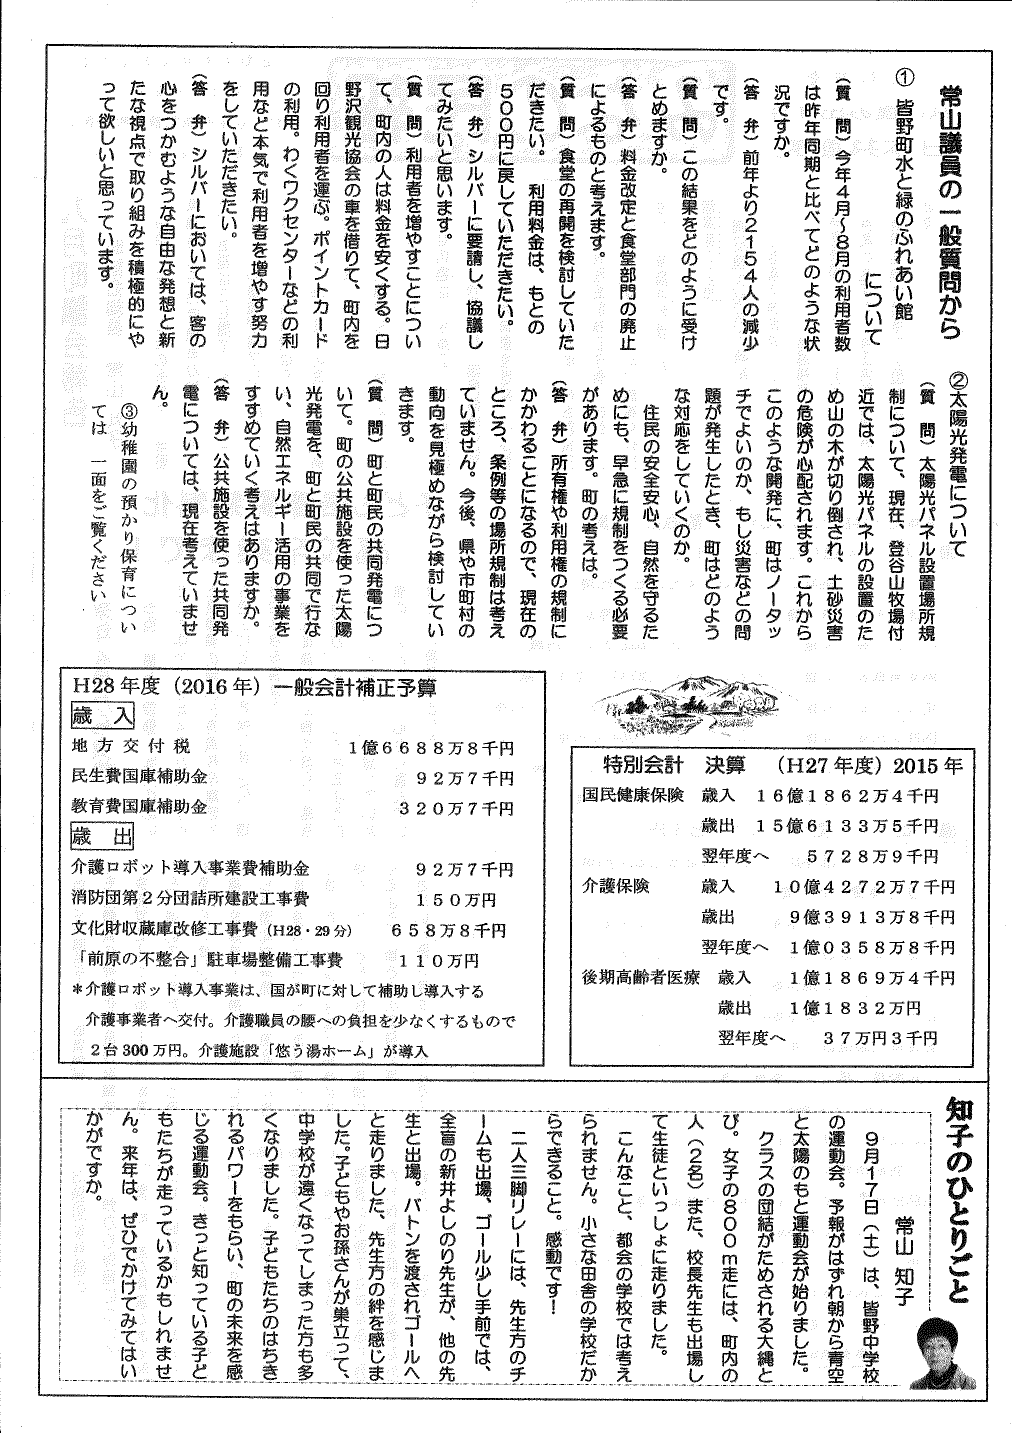 常山議員の一般質問から
① 皆野町水と緑のふれあい館
について
(質 問)今年4月～8月の利用者数
は昨年同期と比べてどのような状
況ですか。
(答 弁)前年より2154人の減少
です。
(質 問)この結果をどのように受け
とめますか。
(答 弁)料金改定と食堂部門の廃止
によるものと考えます。
(質 問)食堂の再開を検討していた
だきたい。 利用料金は、もとの
500円に戻していただきたい。
(答 弁)シルバーに要請し、協議し
てみたいと思います。
(質 問)利用者を増やすことについ
て、町内の人は料金を安くする。日
野沢観光協会の車を借りて、町内を
回り利用者を運ぶ。ポイントカード
の利用。わくワクセンターなどの利
用など本気で利用者を増やす努力
をしていただきたい。
(答 弁)シルバーにおいては、客の
心をつかむような自由な発想と新
たな視点で取り組みを積極的にや
って欲しいと思っています。
②太陽光発電について
(質 問)太陽光パネル設置場所規
制について、現在、登谷山牧場付
近では、太陽光パネルの設置のた
め山の木が切り倒され、土砂災害
の危険が心配されます。これから
このような開発に、町はノータッ
チでよいのか、もし災害などの問
題が発生したとき、町はどのよう
な対応をしていくのか。
住民の安全安心、自然を守るた
めにも、早急に規制をつくる必要
があります。町の考えは。
(答 弁)所有権や利用権の規制に
かかわることになるので、現在の
ところ、条例等の場所規制は考え
ていません。今後、県や市町村の
動向を見極めながら検討してい
きます。
(質 問)町と町民の共同発電につ
いて。町の公共施設を使った太陽
光発電を、町と町民の共同で行な
い、自然エネルギー活用の事業を
すすめていく考えはありますか。
(答 弁)公共施設を使った共同発
電については、現在考えていませ
ん。
③幼稚園の預かり保育につい
ては 一面をご覧ください
H28年度(2016年)一般会計補正予算
歳 入
地方交付税 1億6688万8千円
民生費国庫補助金 92万7千円
教育費国庫補助金 320万7千円
歳 出
介護ロボット導入事業費補助金 92万7千円
消防団第2分団詰所建設工事費 150万円
文化財収蔵庫改修工事費(H28・29分) 658万8千円
「前原の不整合」駐車場整備工事費 110万円
＊介護ロボット導入事業は、国が町に対して補助し導入する
介護事業者へ交付。介護職員の腰への負担を少なくするもので
2台300万円。介護施設「悠う湯ホーム」が導入
特別会計 決算 (H27年度)2015年
国民健康保険 歳入 16億1862万4千円
歳出 15億6133万5千円
翌年度へ 5728万9千円
介護保険 歳入 10億4272万7千円
歳出 9億3913万8千円
翌年度へ 1億0358万8千円
後期高齢者医療 歳入 1億1869万4千円
歳出 1億1832万円
翌年度へ 37万円3千円
知子のひとりごと
常山 知子
9月17日(土)は、皆野中学校
の運動会。予報がはずれ朝から青空
と太陽のもと運動会が始りました。
クラスの団結がためされる大縄と
び。女子の800m走には、町内の
人(2名)また、校長先生も出場し
て生徒といっしょに走りました。
こんなこと、都会の学校では考え
られません。小さな田舎の学校だか
らできること。感動です！
二人三脚リレーには、先生方のチ
ームも出場、ゴール少し手前では、
全盲の新井よしのり先生が、他の先
生と出場。バトンを渡されゴールへ
と走りました、先生方の絆を感じま
した。子どもやお孫さんが巣立って、
中学校が遠くなってしまった方も多
くなりました。子どもたちのはちき
れるパワーをもらい、町の未来を感
じる運動会。きっと知っている子ど
もたちが走っているかもしれませ
ん。来年は、ぜひでかけてみてはい
かがですか。